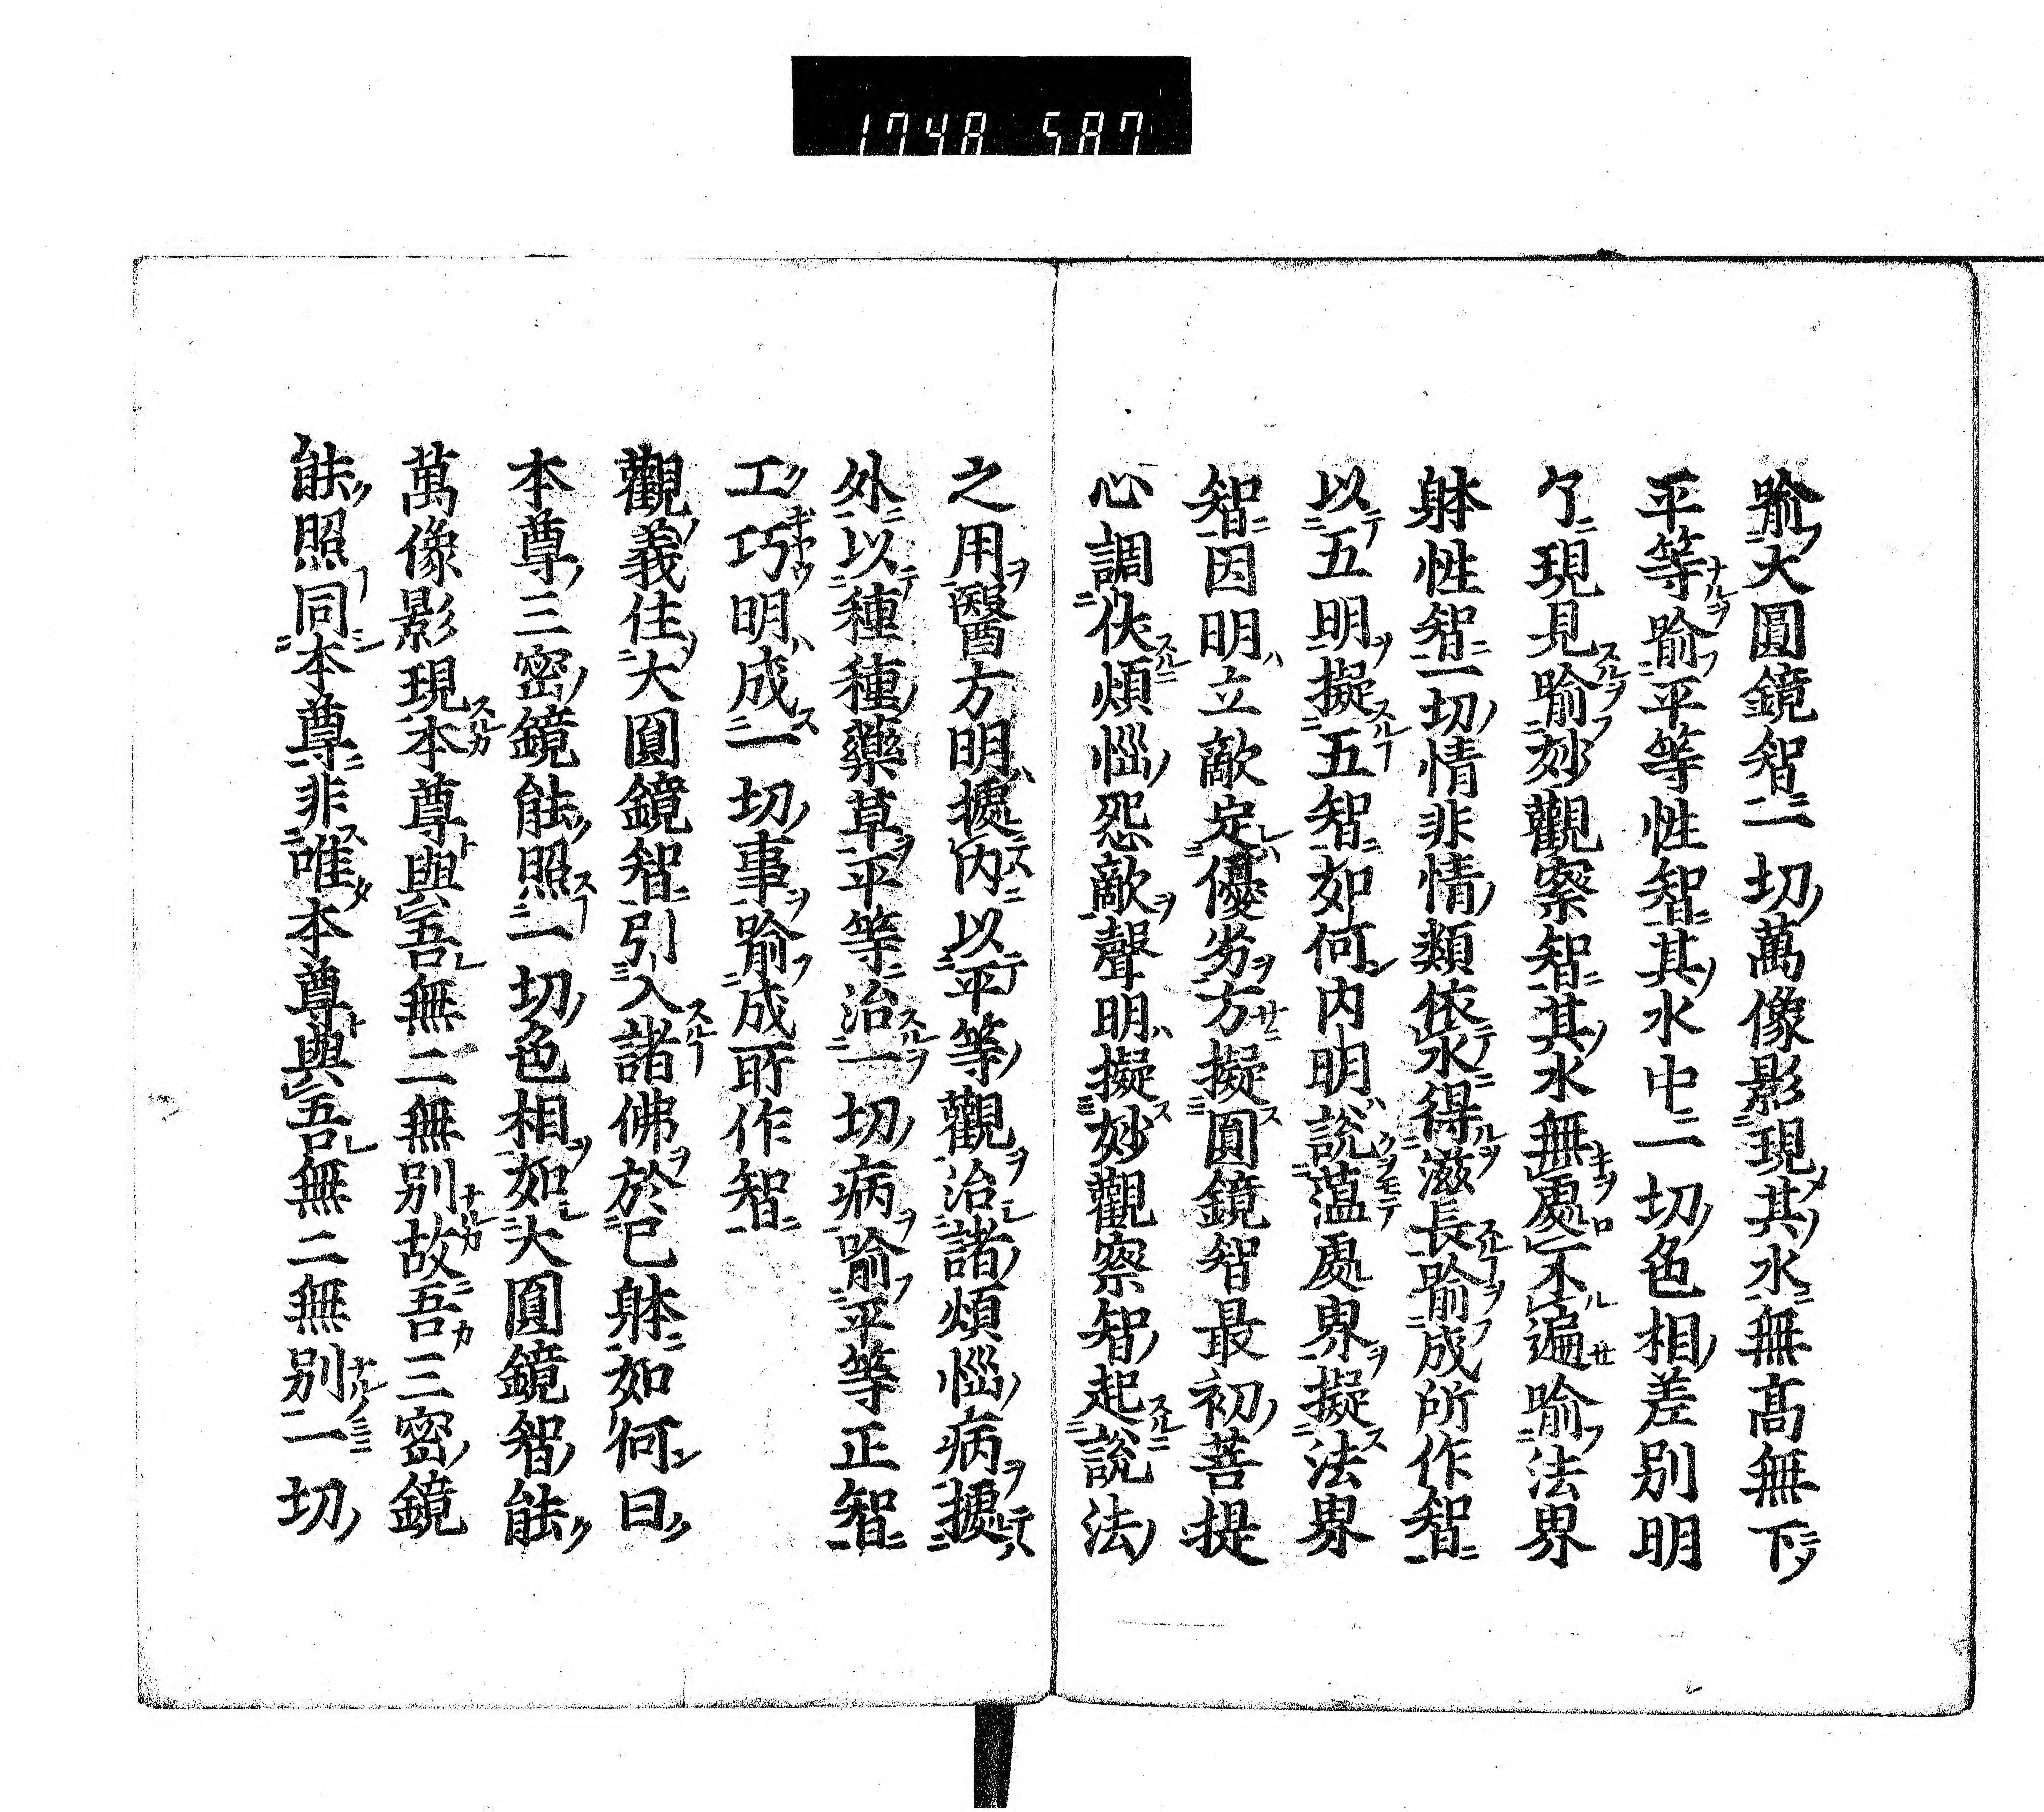 1748 587
喩大圓鏡智一切萬像影現其水無髙無下
平等喩平等性智其水中一切色相差別明
了現見喩妙觀察智其水無處不遍喩法界
躰性智一切情非情類依水得滋長喩成所作智
以五明擬五智如何内明說蕰處界擬法界
智因明立敵定優劣方擬圓鏡智最初菩提
心調伏煩惱怨敵聲明擬妙觀察智起說法
之用醫方明據内以平等觀治諸煩惱病據
外以種種藥草平等治一切病喩平等正智
工巧明成一切事喩成所作智
觀義住大圓鏡智引入諸佛於己躰如何曰
本尊三密鏡能照一切色相如大圓鏡智能
萬像影現本尊與吾無二無別故吾三密鏡
能照同本尊非唯本尊與吾無二無別一切